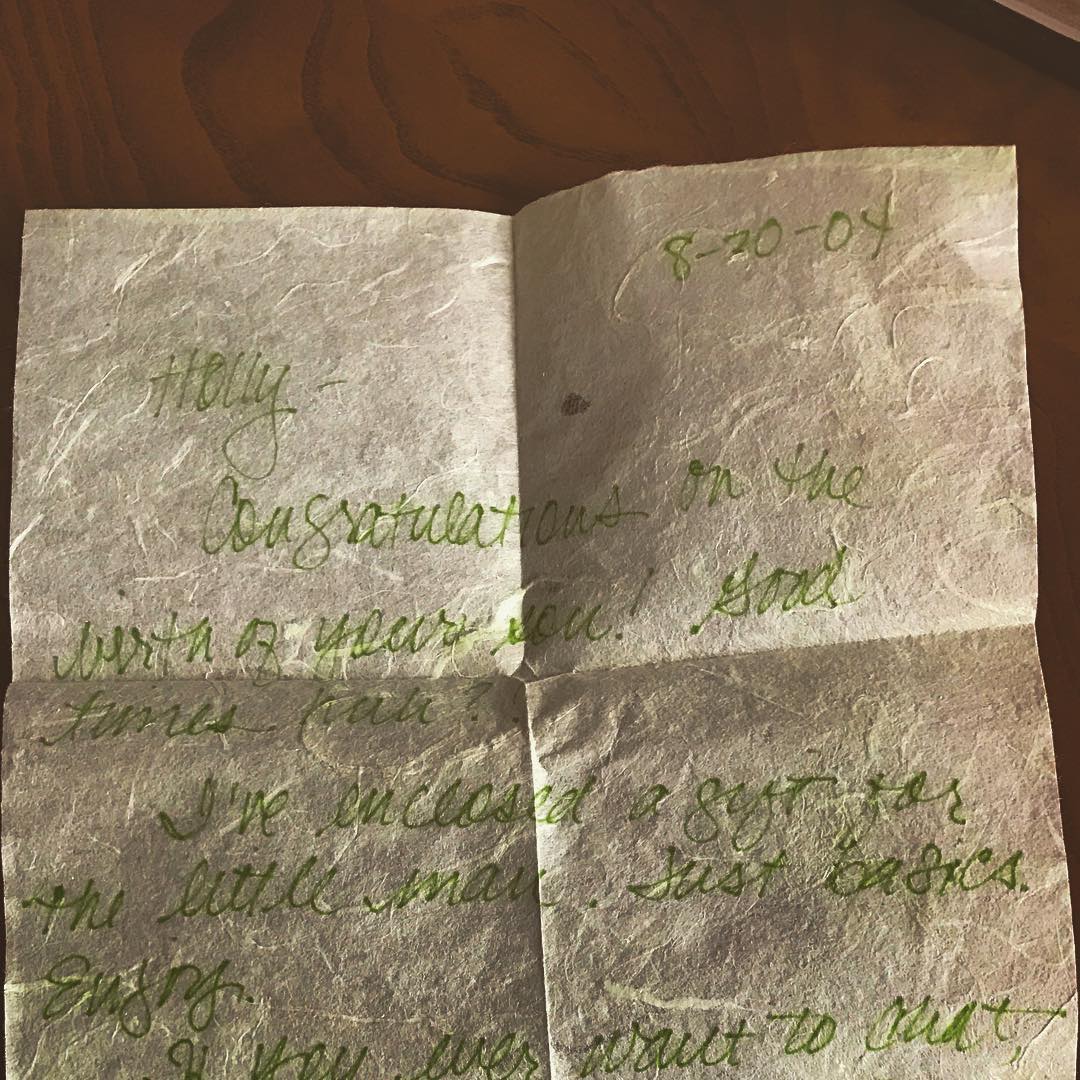 8-20-04
Holly -
Congratulations on the
birth of your son! Good
times huh?
I've enclosed a gift for
the little man. Just basics.
Enjoy.
If you ever want to chat,